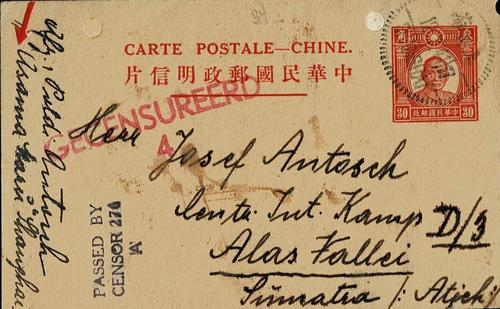 CARTE POSTALE—CHINE.
片信明政郵國民華中
角
30
政郵國民華中
30
GECENSUREERD
4
Herr Josef Antosch
Centr. Int. Kamp D/3
Alas Vallei
Sumatra /: Atjeh :/
PASSED BY
CENSOR 270
'A'
Antosch
Usama Maru Shanghai